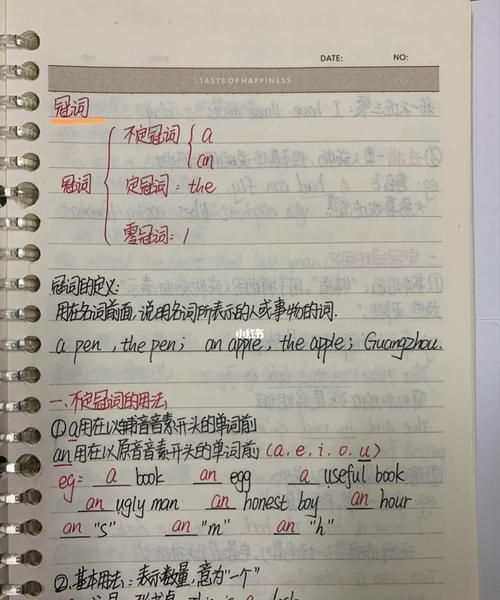 DATE: NO:
TASTE OF HAPPINESS
冠词
冠词 不定冠词 a
an
定冠词:the
零冠词:/
冠词的定义:
用在名词前面,说明名词所表示的人或事物的词.
小红书
a pen , the pen; an apple, the apple; Guangzhou.
一、不定冠词的用法
①a用在以辅音音素开头的单词前
an用在以原音音素开头的单词前(a.e.i.o.u)
eg: a book an egg a useful book
an ugly man an honest boy an hour
an "s" an "m" an "h"
②基本用法:表示数量,意为"一个"